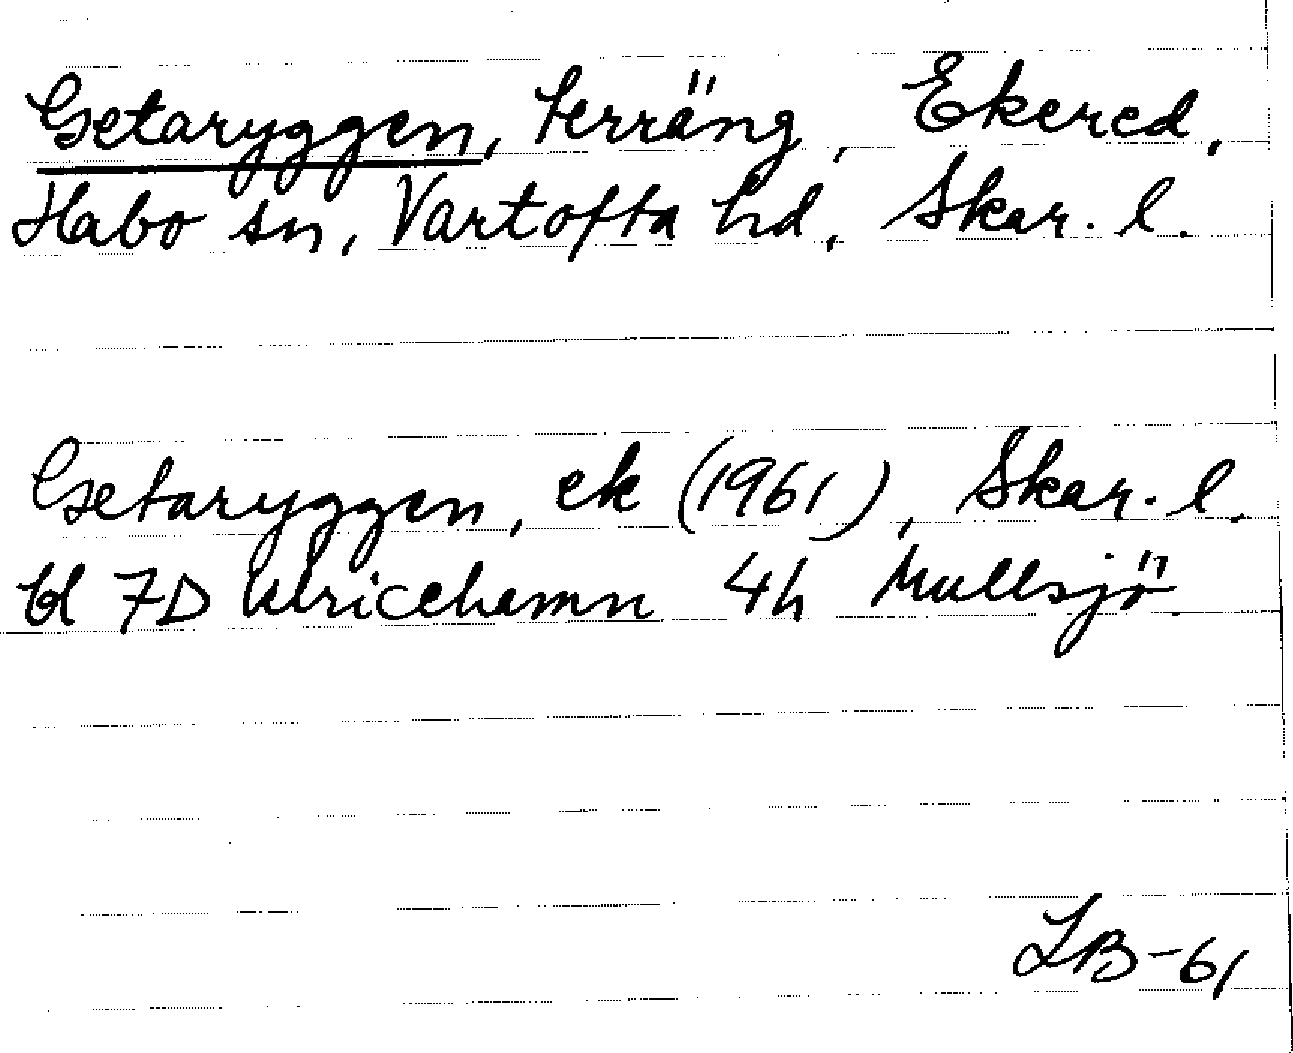 Getaryggen, terräng, Ekered,
Habo sn, Vartofta hd, Skar. l.
Getaryggen, ek (1961), Skar. l.
bl 7D Ulricehamn 4h Mullsjö
LB-61